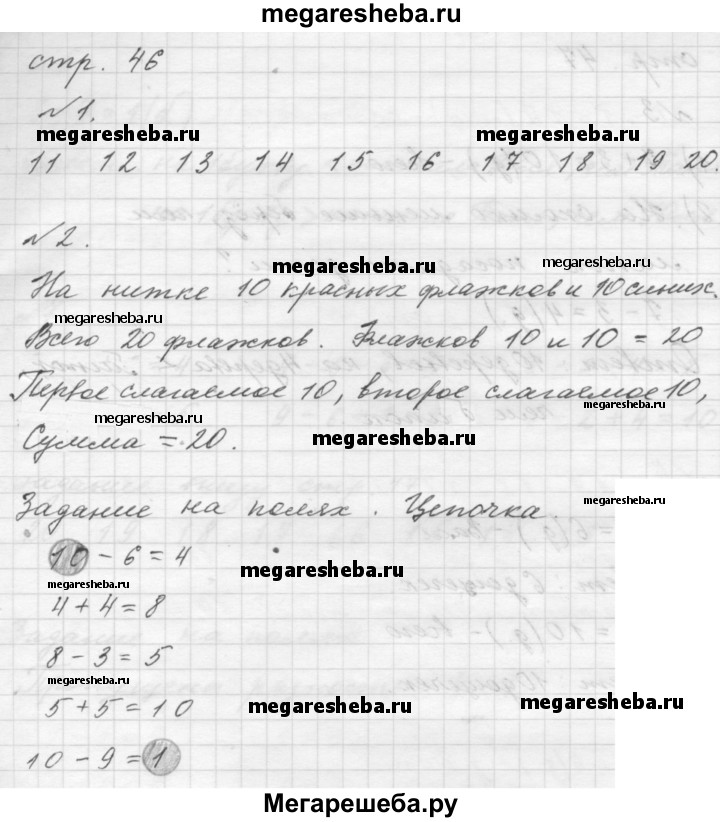 megaresheba.ru
стр. 46
№1.
megaresheba.ru megaresheba.ru
11 12 13 14 15 16 17 18 19 20.
№2.
megaresheba.ru megaresheba.ru
На нитке 10 красных флажков и 10 синих.
megaresheba.ru
Всего 20 флажков. Флажков 10 и 10 = 20
Первое слагаемое 10, второе слагаемое 10,
megaresheba.ru
Сумма = 20.
megaresheba.ru
megaresheba.ru
Задание на полях. Цепочка.
10 - 6 = 4
megaresheba.ru
megaresheba.ru
4 + 4 = 8
8 - 3 = 5
megaresheba.ru
5 + 5 = 10
megaresheba.ru megaresheba.ru
10 - 9 = 1
Мегарешеба.ру